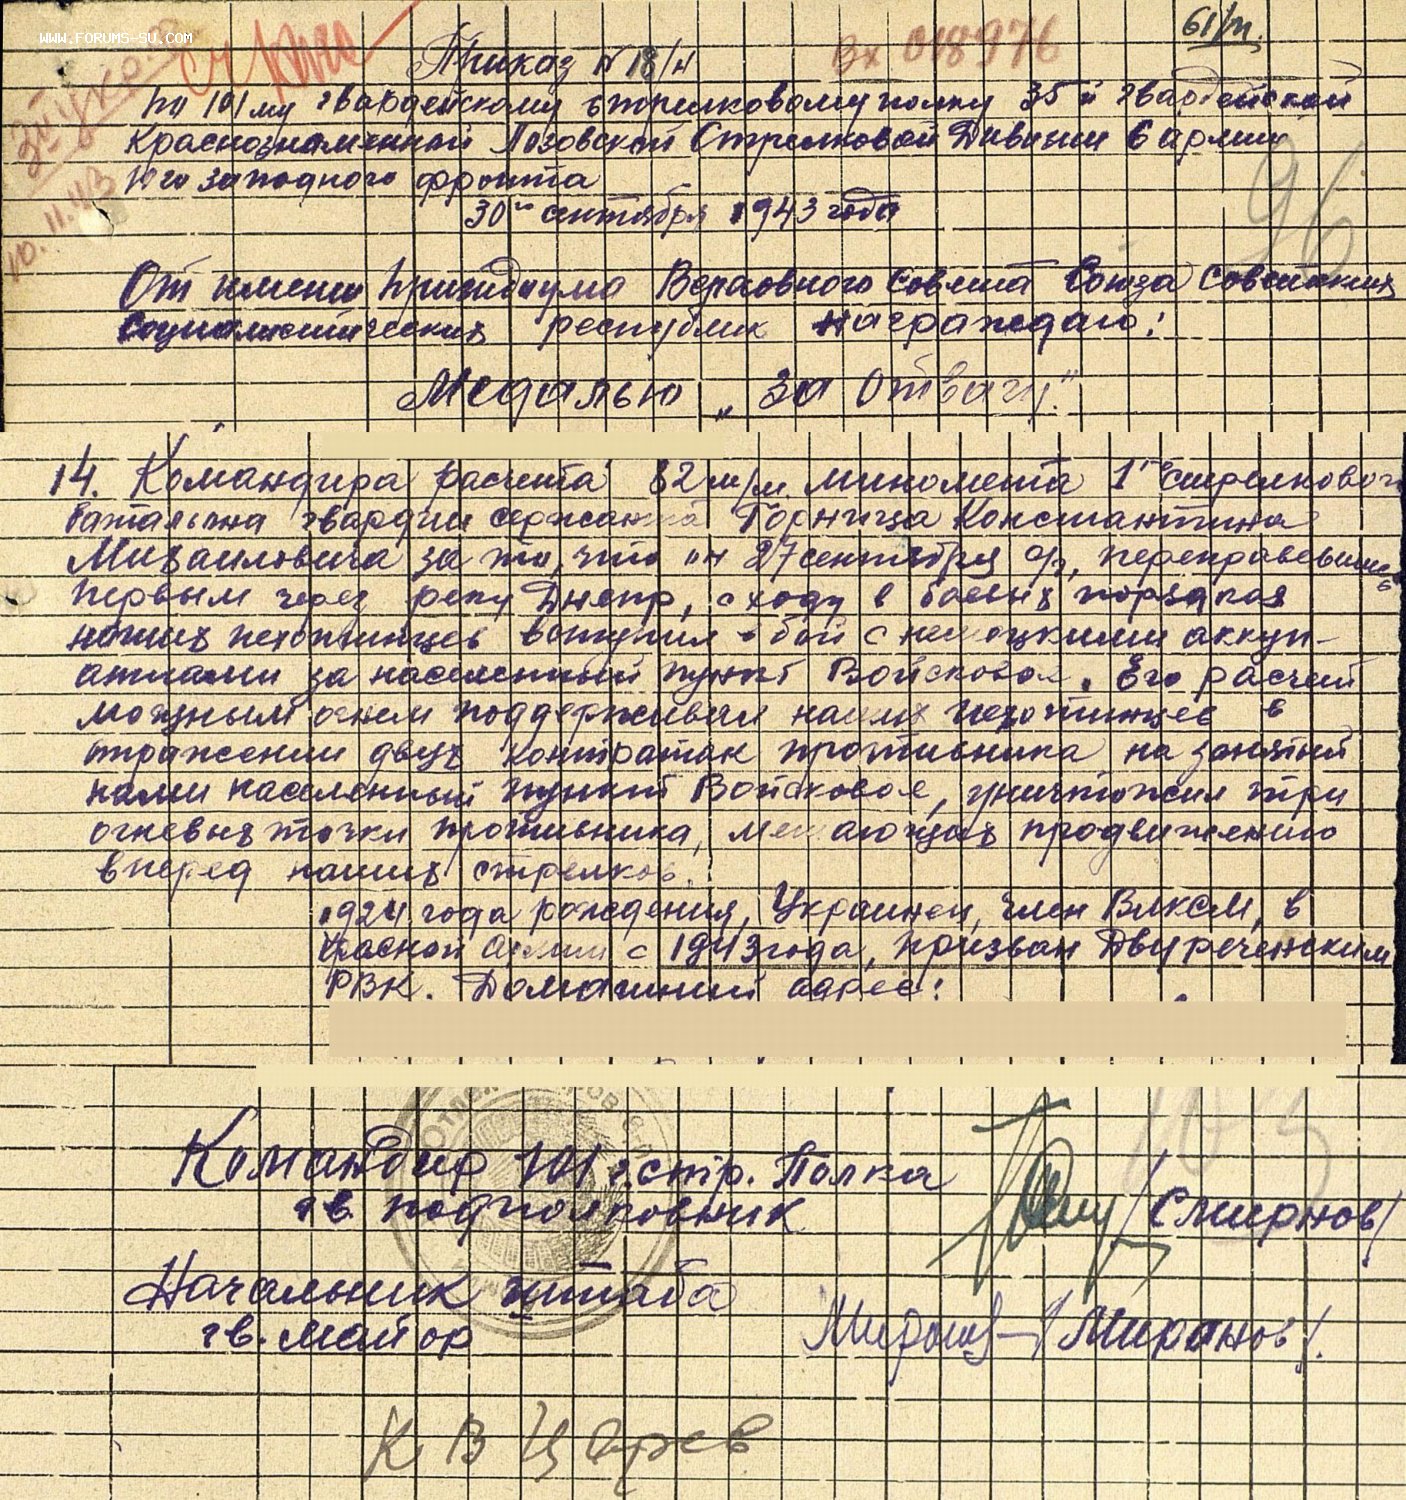 www.forums-su.com
61/н.
Приказ №18/н
Вх 018976
По 101му гвардейскому стрелковому полку 35й гвардейской
Краснознаменной Лозовской Стрелковой Дивизии 6 армии
Юго западного фронта
96
10.11.43
30го сентября 1943 года
От имени Президиума Верховного совета Союза Советских
Социалистических республик награждаю:
Медалью „за Отвагу."
14. Командира расчета 82 м/м. миномета 1го стрелкового
батальона гвардии сержанта Горница Константина
Михаиловича за то, что он 27 сентября с/г, переправевшись
первым через реку Днепр, сходу в боевых порядках
наших пехотинцев вступил в бой с немецкими аккуп-
антами за населенный пункт Войсковое. Его расчет
мощным огнем поддерживал наших пехотинцев в
отражении двух контратак противника на занятый
нами населенный пункт Войсковое, уничтожил три
огневых точки противника, мешающих продвижению
вперед наших стрелков.
1924 года рождения, Украинец, член ВЛКСМ, в
Красной Армии с 1943 года, призван Двуреченским
РВК. Домашний адрес:
Командир 101 г.стр. Полка
гв. подполковник /Смирнов/
Начальник штаба
гв. майор Миронов /Миронов/.
К В Царев